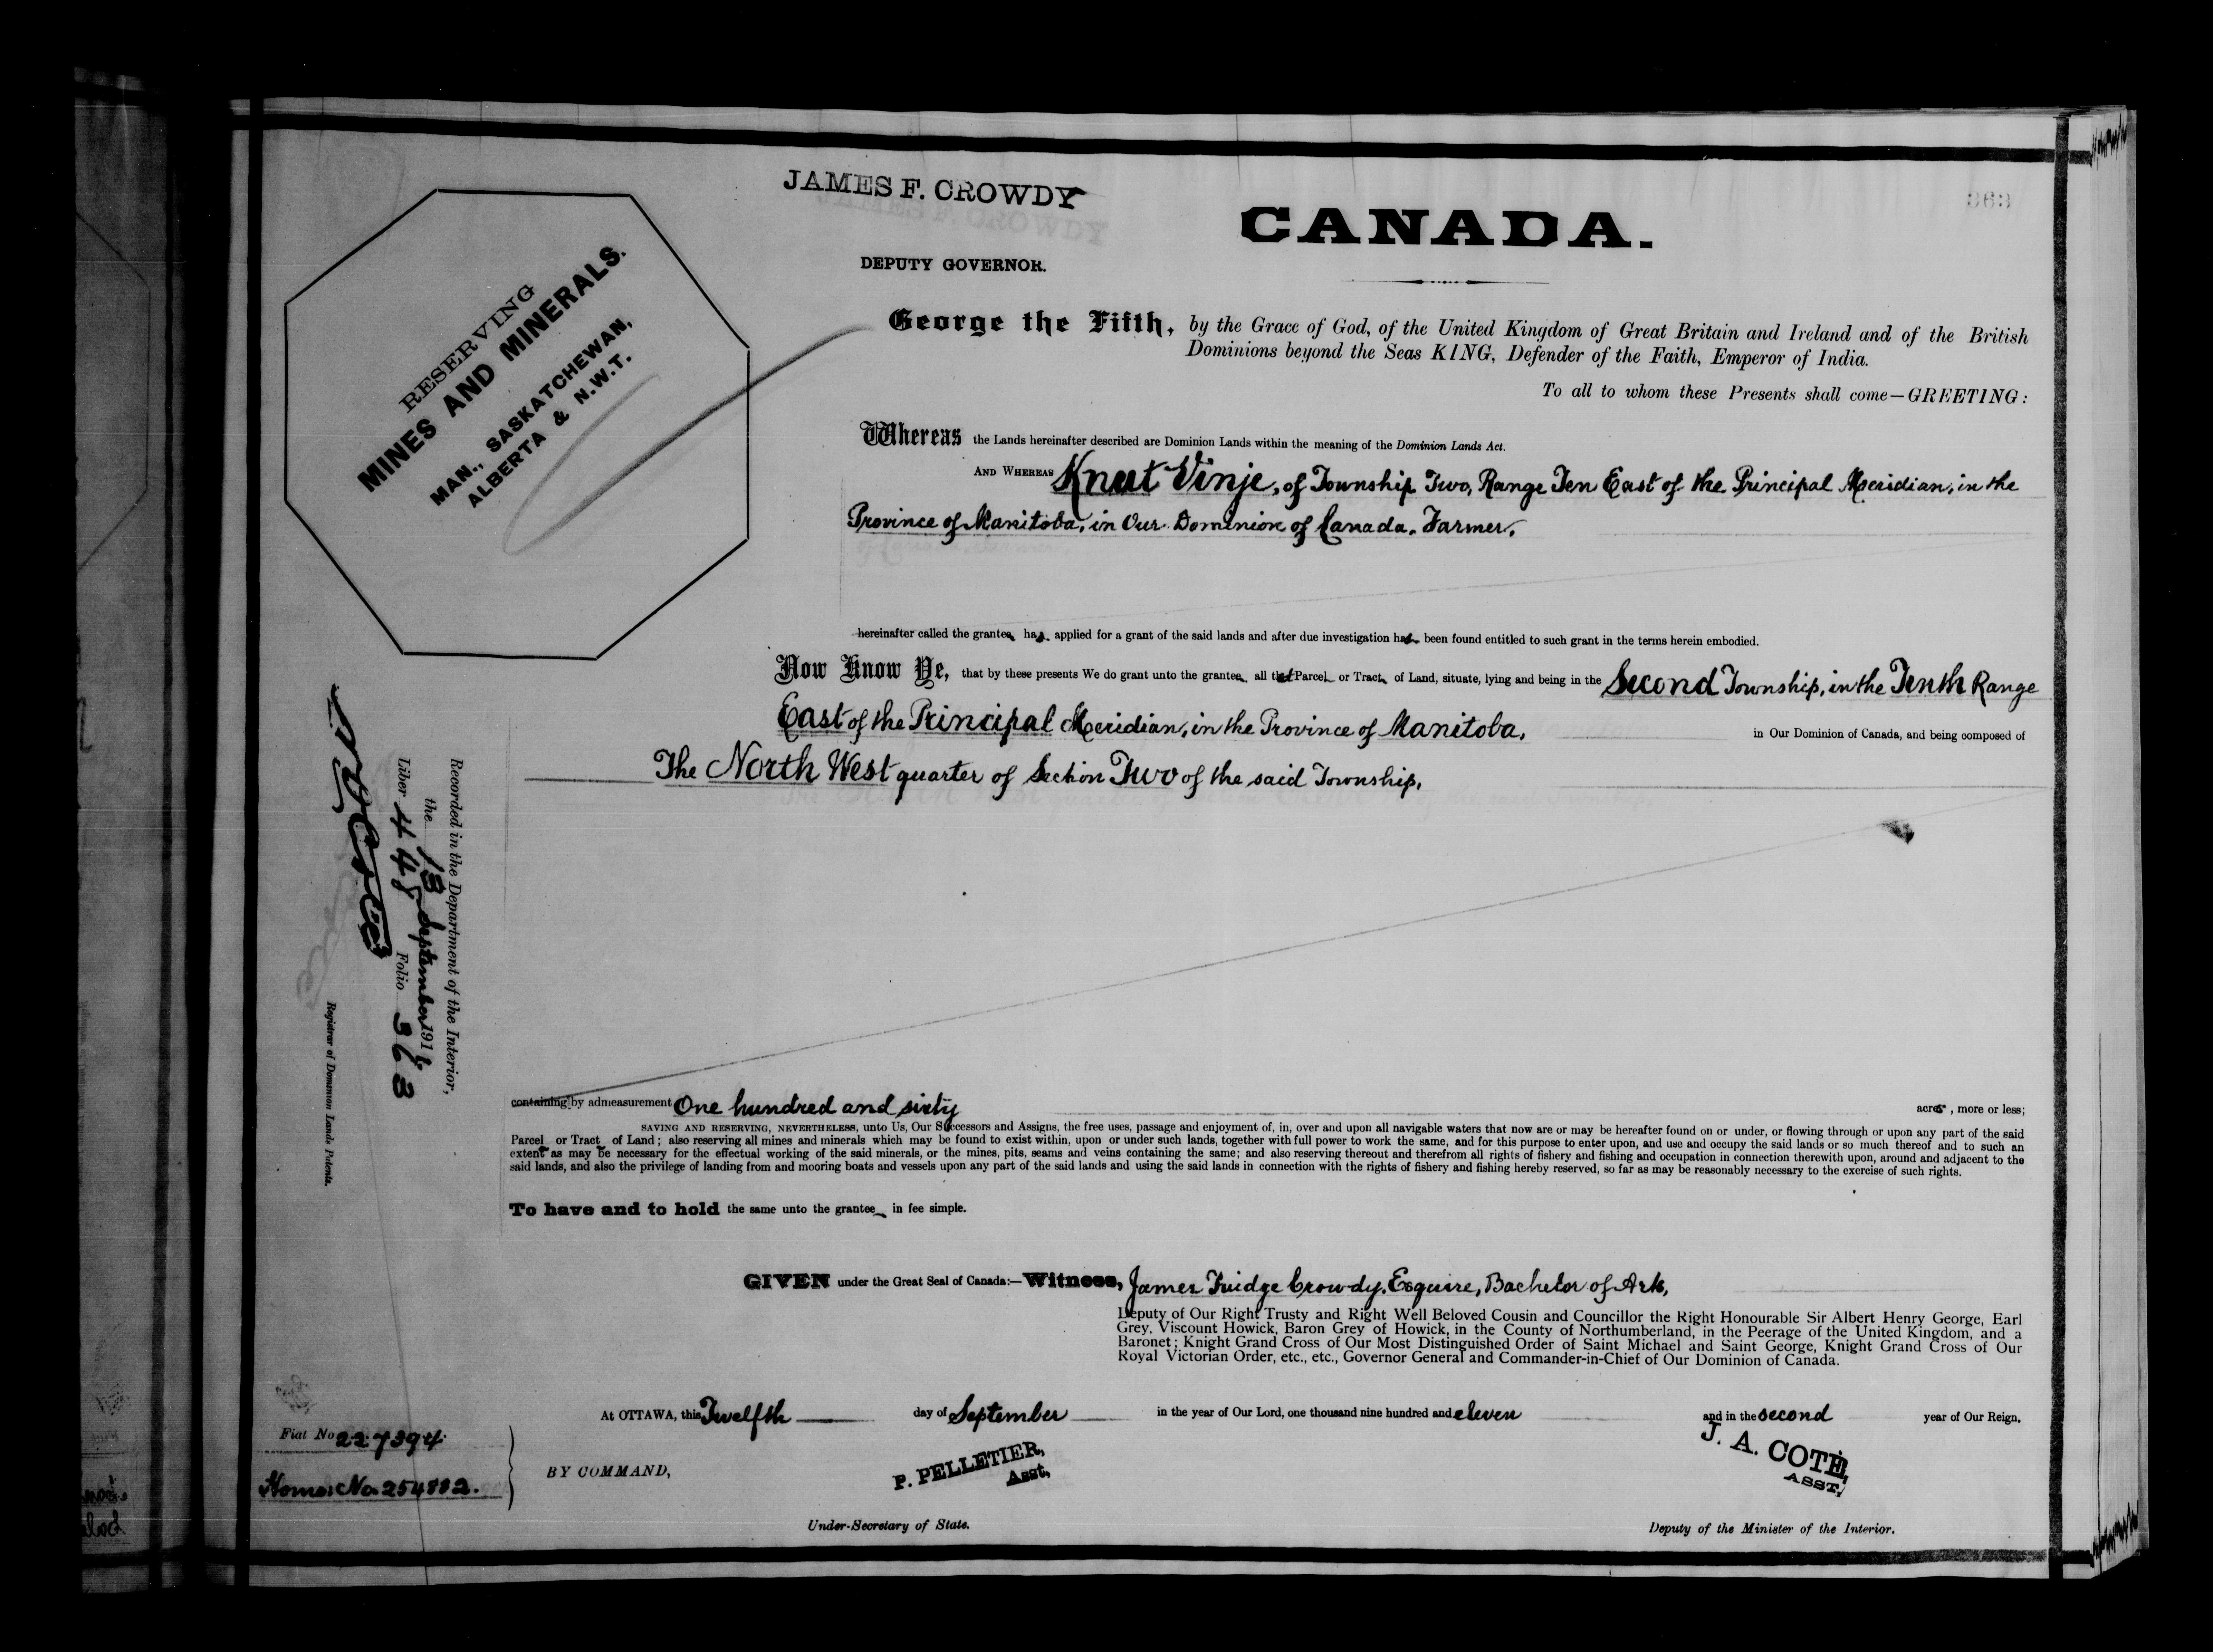 JAMES F. CROWDY
DEPUTY GOVERNOR.
CANADA.
363
RESERVING
MINES AND MINERALS.
MAN., SASKATCHEWAN,
ALBERTA & N.W.T.
George the Fifth, by the Grace of God, of the United Kingdom of Great Britain and Ireland and of the British
Dominions beyond the Seas KING, Defender of the Faith, Emperor of India.
To all to whom these Presents shall come—GREETING:
Whereas the Lands hereinafter described are Dominion Lands within the meaning of the Dominion Lands Act.
AND WHEREAS Knut Vinje, of Township Two, Range Ten East of the Principal Meridian, in the
Province of Manitoba, in Our Dominion of Canada, Farmer,
hereinafter called the grantee has applied for a grant of the said lands and after due investigation has been found entitled to such grant in the terms herein embodied.
Now Know Ye, that by these presents We do grant unto the grantee all that Parcel or Tract of Land, situate, lying and being in the Second Township, in the Tenth Range
East of the Principal Meridian, in the Province of Manitoba, in Our Dominion of Canada, and being composed of
The North West quarter of Section Two of the said Township,
Recorded in the Department of the Interior,
the 18 September 1911
Liber 448 Folio 363
Registrar of Dominion Lands Patents.
containing by admeasurement One hundred and sixty acres, more or less;
SAVING AND RESERVING, NEVERTHELESS, unto Us, Our Successors and Assigns, the free uses, passage and enjoyment of, in, over and upon all navigable waters that now are or may be hereafter found on or under, or flowing through or upon any part of the said
Parcel or Tract of Land; also reserving all mines and minerals which may be found to exist within, upon or under such lands, together with full power to work the same, and for this purpose to enter upon, and use and occupy the said lands or so much thereof and to such an
extent as may be necessary for the effectual working of the said minerals, or the mines, pits, seams and veins containing the same; and also reserving thereout and therefrom all rights of fishery and fishing and occupation in connection therewith upon, around and adjacent to the
said lands, and also the privilege of landing from and mooring boats and vessels upon any part of the said lands and using the said lands in connection with the rights of fishery and fishing hereby reserved, so far as may be reasonably necessary to the exercise of such rights.
To have and to hold the same unto the grantee in fee simple.
GIVEN under the Great Seal of Canada:—Witness, James Fuidge Crowdy, Esquire, Bachelor of Arts,
Deputy of Our Right Trusty and Right Well Beloved Cousin and Councillor the Right Honourable Sir Albert Henry George, Earl
Grey, Viscount Howick, Baron Grey of Howick, in the County of Northumberland, in the Peerage of the United Kingdom, and a
Baronet; Knight Grand Cross of Our Most Distinguished Order of Saint Michael and Saint George, Knight Grand Cross of Our
Royal Victorian Order, etc., etc., Governor General and Commander-in-Chief of Our Dominion of Canada.
At OTTAWA, this Twelfth day of September in the year of Our Lord, one thousand nine hundred and eleven and in the second year of Our Reign.
Fiat No 227394
Homes No 254882.
BY COMMAND,
P. PELLETIER,
Asst,
J. A. COTÉ,
ASST,
Under-Secretary of State.
Deputy of the Minister of the Interior.